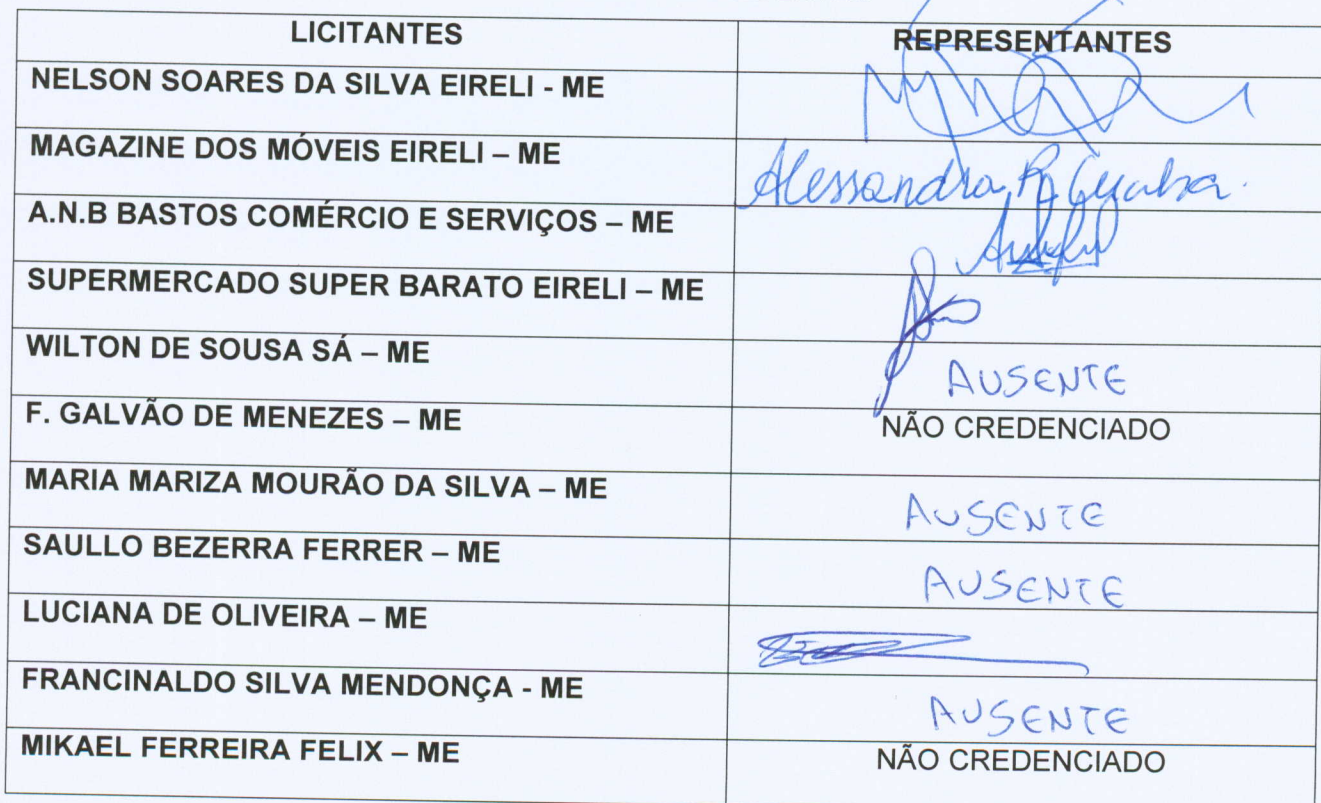 LICITANTES REPRESENTANTES
NELSON SOARES DA SILVA EIRELI - ME
MAGAZINE DOS MÓVEIS EIRELI – ME Alessandra
A.N.B BASTOS COMÉRCIO E SERVIÇOS – ME
SUPERMERCADO SUPER BARATO EIRELI – ME
WILTON DE SOUSA SÁ – ME AUSENTE
F. GALVÃO DE MENEZES – ME NÃO CREDENCIADO
MARIA MARIZA MOURÃO DA SILVA – ME AUSENTE
SAULLO BEZERRA FERRER – ME AUSENTE
LUCIANA DE OLIVEIRA – ME
FRANCINALDO SILVA MENDONÇA - ME AUSENTE
MIKAEL FERREIRA FELIX – ME NÃO CREDENCIADO